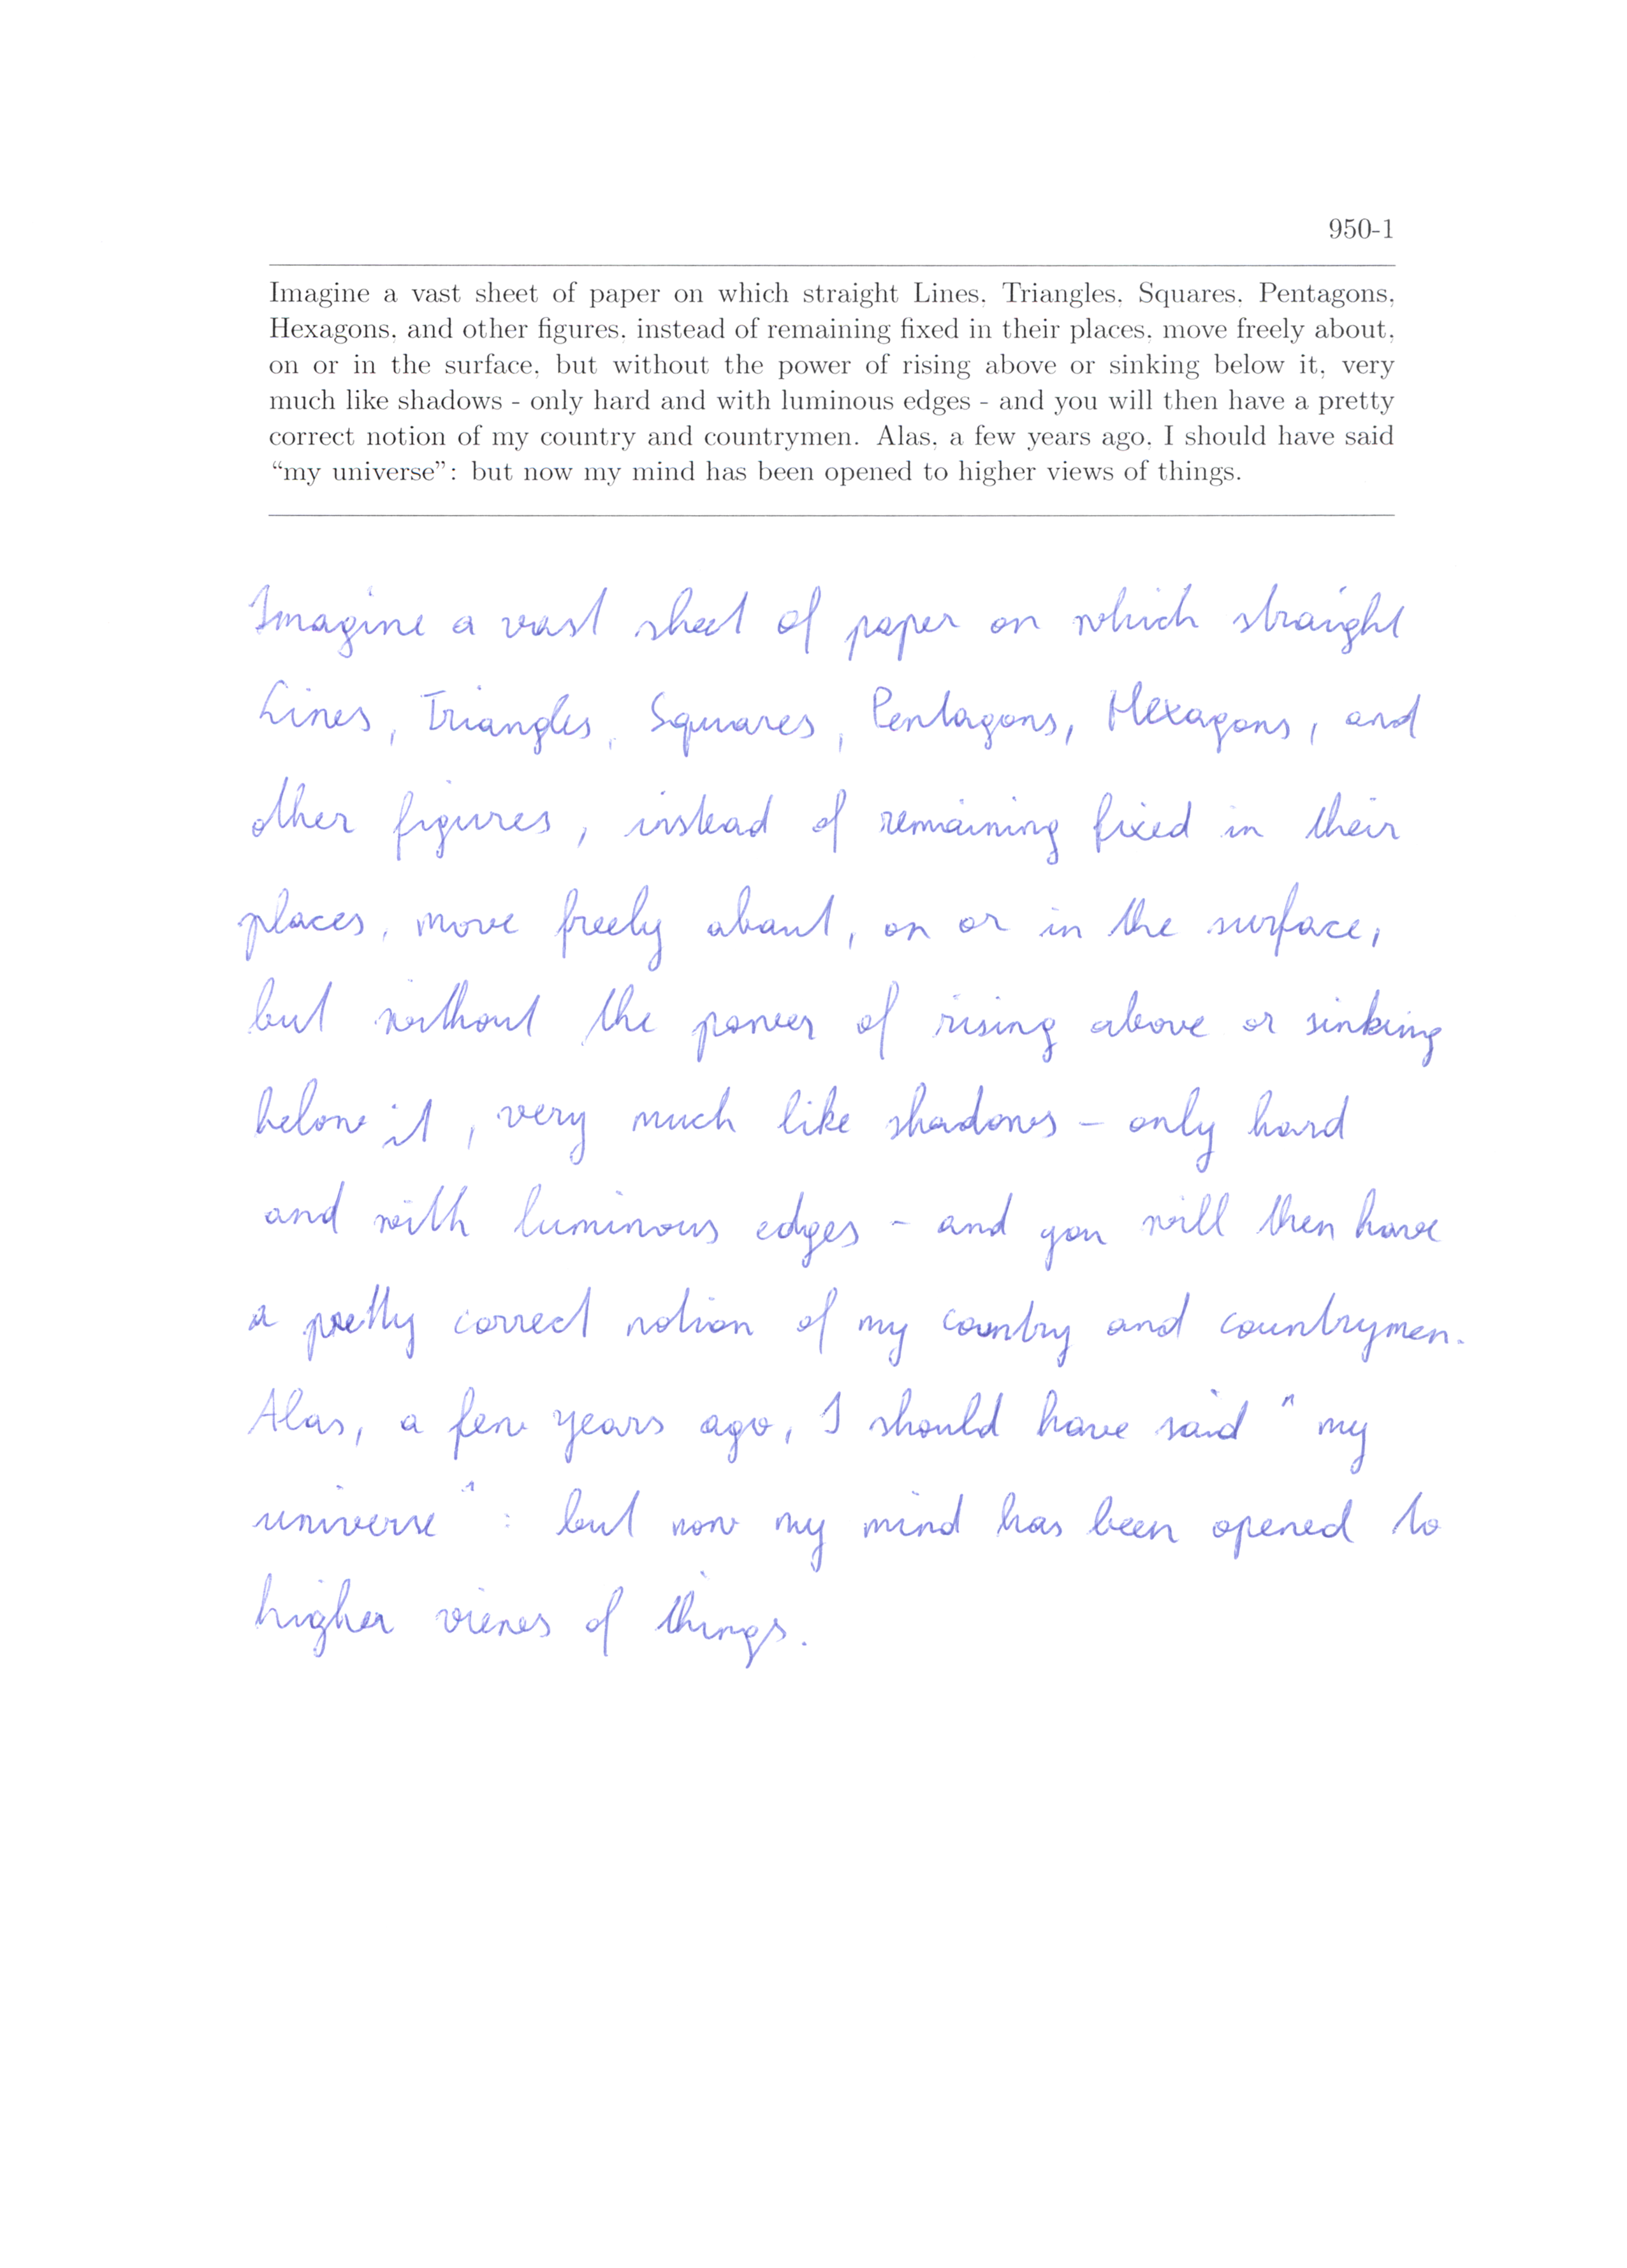 950-1
Imagine a vast sheet of paper on which straight Lines, Triangles, Squares, Pentagons,
Hexagons, and other figures, instead of remaining fixed in their places, move freely about,
on or in the surface, but without the power of rising above or sinking below it, very
much like shadows - only hard and with luminous edges - and you will then have a pretty
correct notion of my country and countrymen. Alas, a few years ago, I should have said
“my universe”: but now my mind has been opened to higher views of things.
Imagine a vast sheet of paper on which straight
Lines, Triangles, Squares, Pentagons, Hexagons, and
other figures, instead of remaining fixed in their
places, move freely about, on or in the surface,
but without the power of rising above or sinking
below it, very much like shadows - only hard
and with luminous edges - and you will then have
a pretty correct notion of my country and countrymen.
Alas, a few years ago, I should have said "my
universe": but now my mind has been opened to
higher views of things.